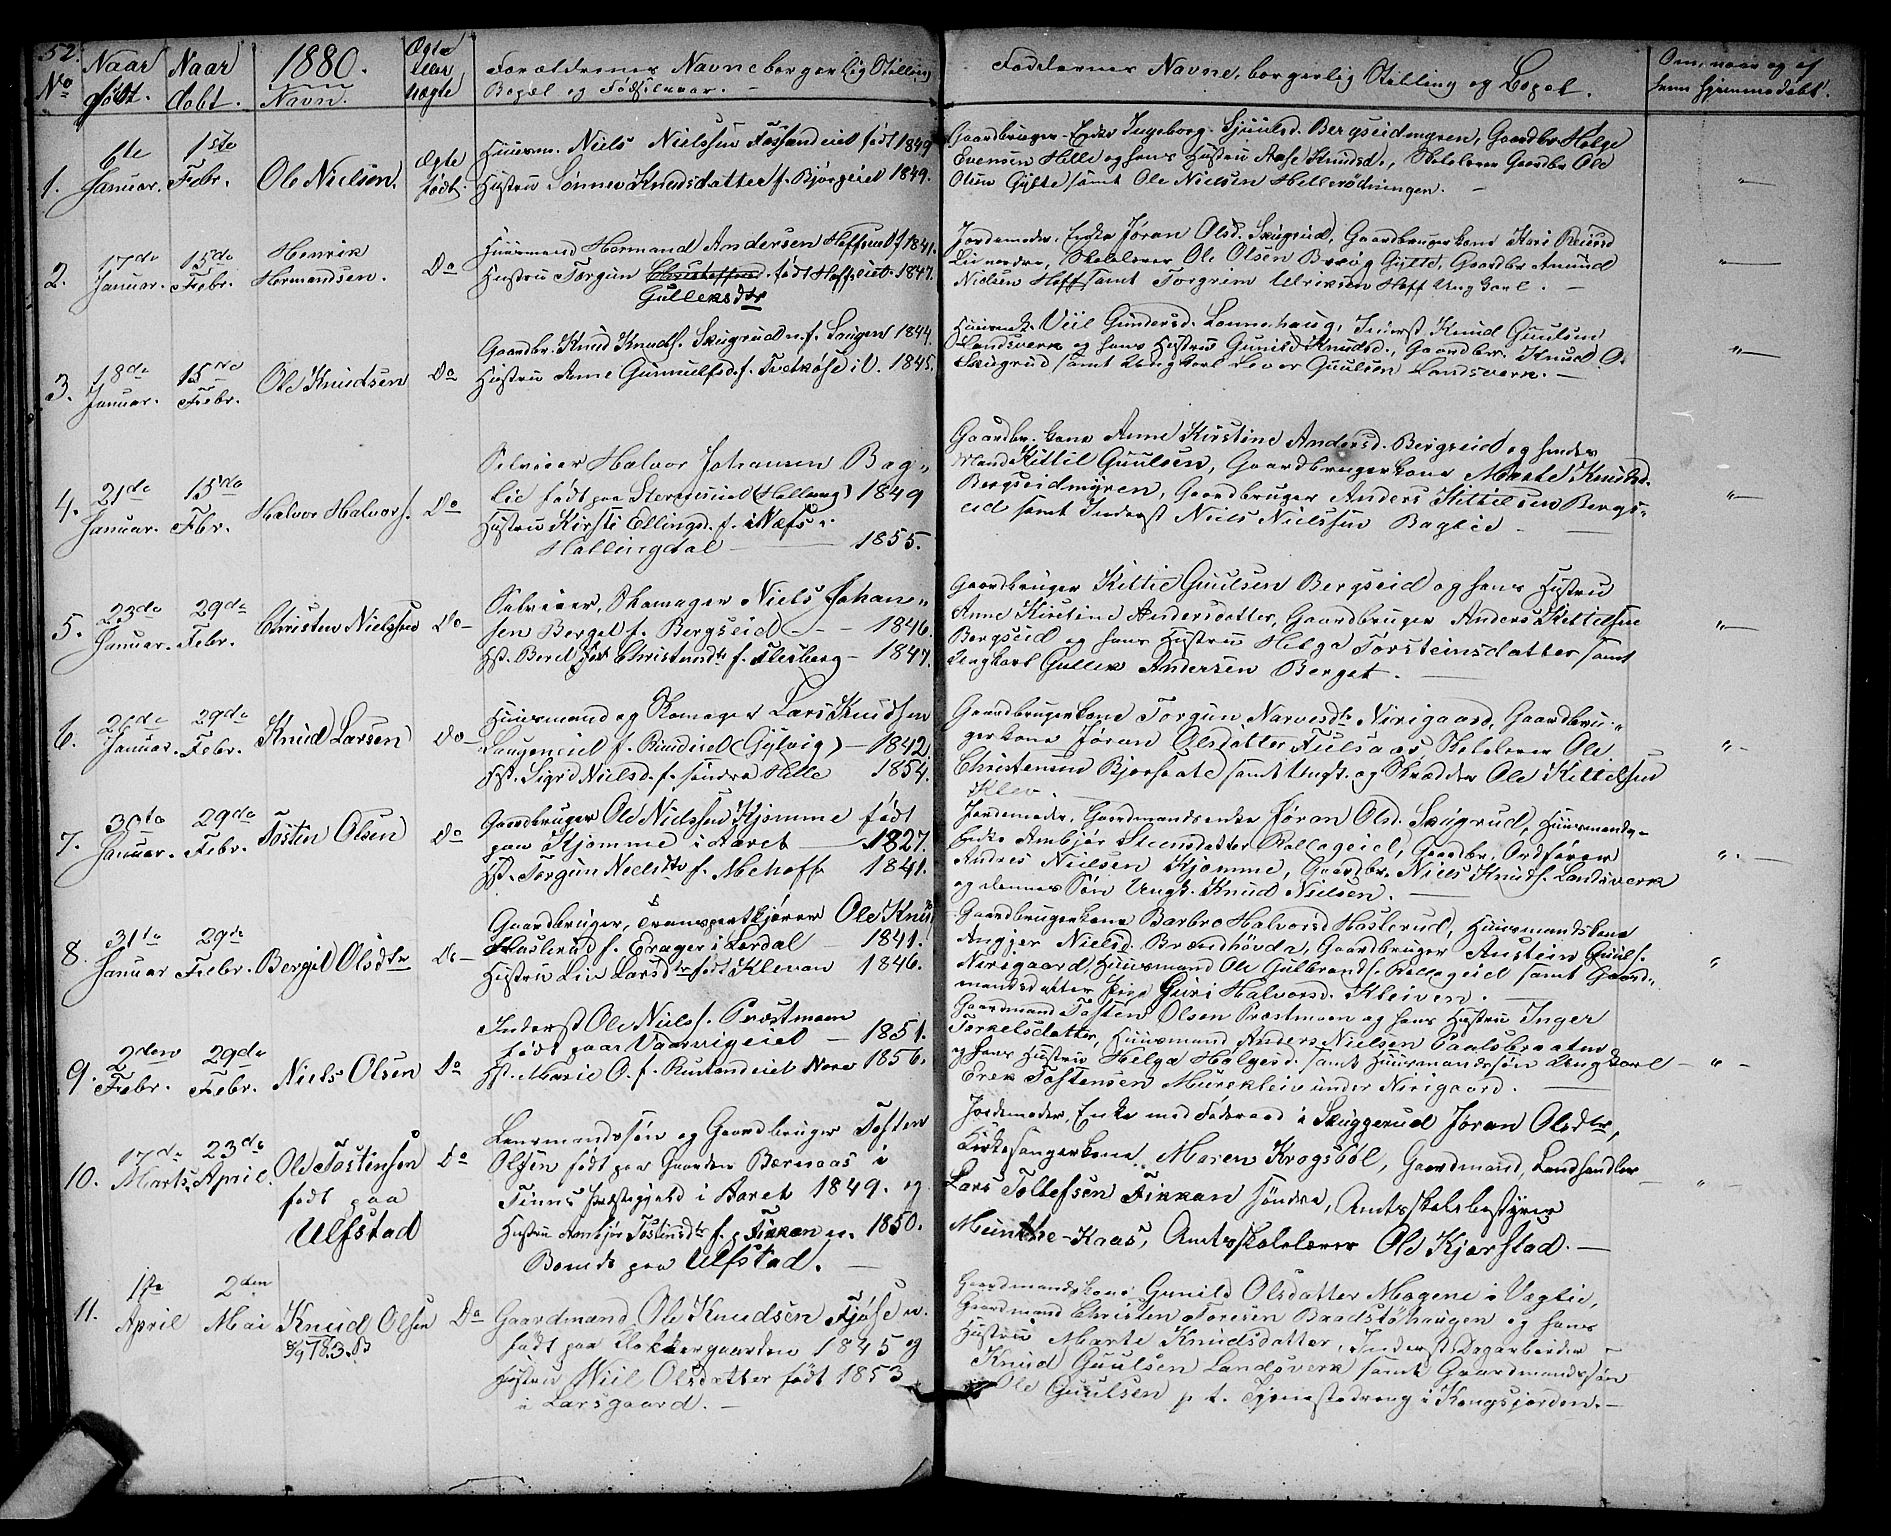 52.
No
Naar født.
Naar døbt.
1880.
Navn.
Ægte eller uægte
Forældrenes Navne borgerlig Stilling
Bopæl og Fødselsaar.
Faddernes Navne, borgerlig Stilling og Bopel.
Om, naar og af
hvem hjemmedøbt.
1.
6te Januar.
1ste Febr.
Ole Nielsen.
Ægte født.
Huusm. Niels Nielssen født 1849
Hustru Sønnev Knudsdatter f. Bjørgeiet 1849.
Gaardbruger-Enke Ingeborg Sjuulsd. Bergseidmyren, Gaardbr. Helge
Evensen Helle og hans Hustru Aase Knudsd., Skolelærer Gaardbr Ole
Olsen Gytte samt Ole Nielsen Hellerødningen.
"
2.
17de Januar.
15de Febr.
Henrik
Hermandsen.
Do
Huusmand Hermand Andersen Hoffseiet f 1841.
Hustru Torgun født Hoffseiet 1847.
Gulleksdtr
Jordemoder, Enke Jøran Olsd. Skugrud, Gaardbrugerkone Kari
Skolelærer Ole Olsen Gytte, Gaardbr. Amund
Nielsen Hoff samt Torgrim Ulriksen Hoff Ungkarl.
"
3.
18de Januar.
15de Febr.
Ole Knudsen
Do
Gaardbr. Knud Knuds. Skugrud n. f. Laugen 1844.
Hustru Anne Gunnulfsd. f. Tvetkøse i O. 1845.
Huusmk. Viil Gundersd. Lonnehaug, Inderst Knud Guulsen
Landsverk og hans Hustru Gunild Knudsd., Gaardbr. Knud O.
Skugrud samt Ungkarl Lever Guulsen Landsverk.
"
4.
21de Januar.
15de Fbr.
Halvor Halvors.
Do
Selveier Halvor Johansen Bag-
lie født paa 1849
Hustru Kirsti Ellingsd. f. i Næss i
Hallingdal 1855.
Gaardbr. kone Anne Kirstine Andersd. Bergseid og hendes
Mand Kittil Guulsen, Gaardbrugerkone Marte Knudsd.
Bergseidmyren, Gaardbruger Anders Kittilsen Bergs-
eid samt Inderst Niels Nielssen Baglie
"
5.
23de Januar.
29de Febr.
Christen Nielssen
Do
Selveier, Skomager Niels Johan-
sen Berget f. Bergseid 1846.
Hst. Beret Christensdtr f. Flesberg 1847.
Gaardbruger Kittil Guulsen Bergseid og hans Hustru
Anne Kirstine Andersdatter, Gaardbruger Anders Kittilsen
Bergseid og hans Hustru Helga Torsteinsdatter samt
Ungkarl Gullek Andersen Berget.
"
6.
26de Januar.
29de Febr.
Knud Larsen
Do
Huusmand og Skomager Lars Knudsen
Laugeneiet f. Rundeiet (Gylvig) 1842
Hst. Sigrid Nielsd. f. søndre Helle 1854.
Gaardbrugerkone Torgun Narvesdtr Nirigaard, Gaardbru-
gerkone Jøran Olsdatter Fulsaas, Skolelærer Ole
Christensen Bjørsaate samt Ungk. og Skrædder Ole Kittelsen
Klev.
"
7.
30te Januar.
29de Febr.
Tosten Olsen
Do
Gaardbruger Ole Nielssen Kjomme født
paa Kjomme i Aaret 1827.
Hst. Torgun Nielsdtr f. Mehoff 1841.
Jordemoder, Gaardmandsenke Jøran Olsd. Skugrud, Huusmands-
Enke Ambjør Steensdatter Rollageiet, Gaardbr. Ordfører
Andres Nielsen Kjomme, Gaardbr. Niels Knuds. Landsverk
og dennes Søn Ungk. Knud Nielsen.
"
8.
31te Januar
29de Febr.
Bergit Olsdtr
Do
Gaardbruger, Transportkjører Ole Knuds.
Haslerud f. Erager i Lerdal 1841.
Hustru Liv Larsdtr født Klevan 1846.
Gaardbrugerkone Barbro Halvorsd Haslerud, Huusmandskone
Angjer Nielsd. Brændhövda, Gaardbruger Austein Guuls.
Nirigaard, Huusmand Ole Gulbrands. Rollageiet samt Gaard-
mandsdatter Pige Guri Halvorsd. Kleiven.
"
9.
2den Febr.
29de Febr.
Niels Olsen
Do
Inderst Ole Niels. Præstmoen
født paa Vaarvigeiet 1851.
Hst. Marie O. f. Ruslandeiet Nore 1856.
Gaardmand Tosten Olsen Præstmoen og hans Hustru Inger
Torkelsdatter, Huusmand Anders Nielsen Paalsbraaten
og hans Hustru Helga Helgesd. samt Huusmandssøn Ungkarl
Erek Tostensen Murekleiv under Nirigaard.
"
10.
17de Marts.
23de April.
Ole Tostensen
født paa
Ulfstad
Do
Lensmandssøn og Gaardbruger Tosten
Olsen født paa Gaarden Bærnaas i
Sinns Præstegjeld i Aaret 1849. og
Hustru Ambjør Tostensdtr f. paa Fikkan n. 1850.
Boende paa Ulfstad.
Jordemoder, Enke med Føderaad i Skuggerud Jøran Olsdtr,
Kirkesangerkone Maren Krogsböl, Gaardmand, Landhandler
Lars Toltefsen Fikkan søndre, Amtsskolebestyrer
Munthe-Kaas, Amtsskolelærer Ole Kjørstad.
"
11.
1ste April
2den Mai
Knud Olsen
Do
Gaardmand Ole Knudsen Fjøse n.
født paa Klokkergaarden 1845 og
Hustru Viil Olsdatter født 1853
i Larsgaard.
Gaardmandskone Gunild Olsdatter Mogene i Veglie,
Gaardmand Christen Toresen Baadstøhaugen og hans
Hustru Marte Knudsdatter, Inderst Dagarbeider
Knud Guulsen Landsverk samt Gaardmandssøn
Ole Guulsen p t. Tjenestedreng i Kongsjorden.
"